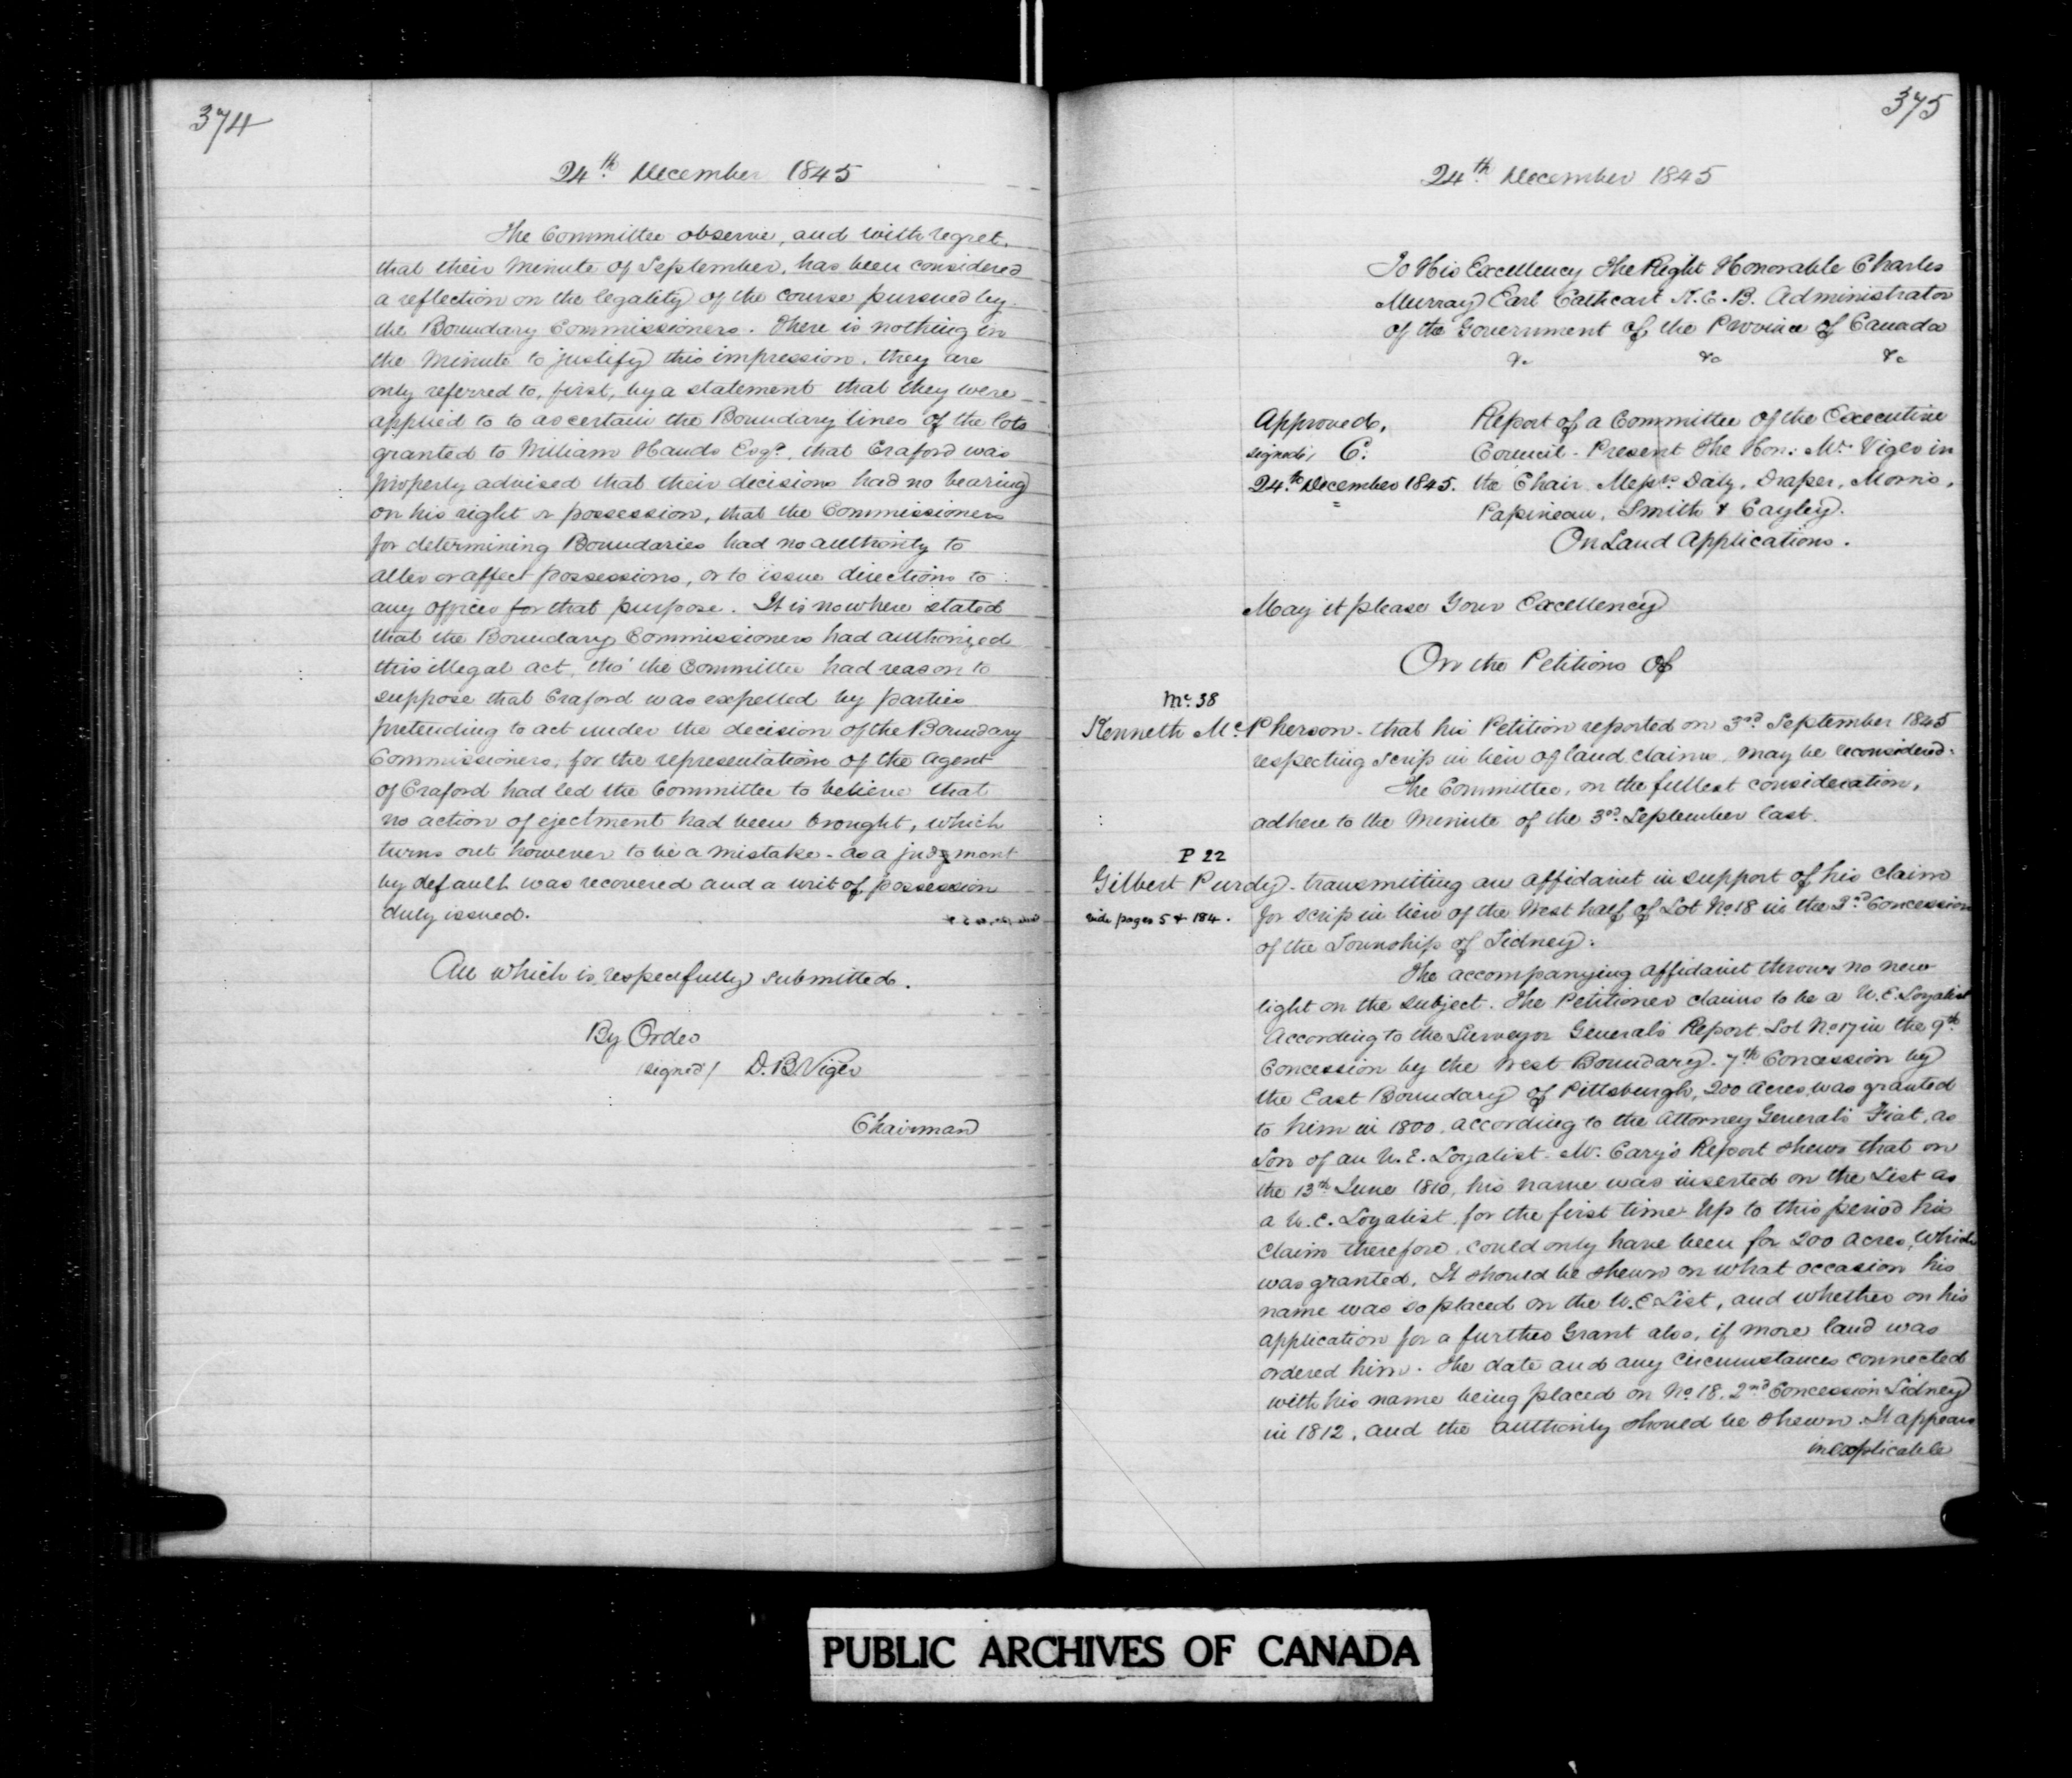 374
24th December 1845
The Committee observe, and with regret,
that their Minute of September, has been considered
a reflection on the legality of the course pursued by
the Boundary Commissioners. There is nothing in
the Minute to justify this impression, they are
only referred to, first, by a statement that they were
applied to to ascertain the Boundary lines of the lots
granted to William Hands Esqr, that Craford was
properly advised that their decisions had no bearing
on his right or possession, that the Commissioners
for determining Boundaries had no authority to
alter or affect possessions, or to issue directions to
any officer for that purpose. It is nowhere stated
that the Boundary Commissioners had authorized
this illegal act, tho' the Committee had reason to
suppose that Craford was expelled by parties
pretending to act under the decision of the Boundary
Commissioners, for the representations of the agent
of Craford had led the Committee to believe that
no action of ejectment had been brought, which
turns out however to be a mistake - as a judgment
by default was recovered and a writ of possession
duly issued.
All which is respectfully submitted.
By Order
(signed) D. B. Viger
Chairman
375
24th December 1845
To His Excellency The Right Honorable Charles
Murray Earl Cathcart K.C.B. Administrator
of the Government of the Province of Canada
&c &c &c
Approved,
signed, C.
24th December 1845.
Report of a Committee of the Executive
Council - Present The Hon: Mr. Viger in
the Chair Messrs Daly, Draper, Morris,
Papineau, Smith & Cayley.
On Land Applications.
May it please Your Excellency
On the Petitions of
Mc 38
Kenneth McPherson - that his Petition reported on 3rd September 1845
respecting scrip in lieu of land claims, may be reconsidered.
The Committee, on the fullest consideration,
adhere to the Minute of the 3rd September last.
P 22
Gilbert Purdy - transmitting an affidavit in support of his claim
vide pages 5 & 184. for scrip in lieu of the West half of Lot No 18 in the 2nd Concession
of the Township of Sidney.
The accompanying affidavit throws no new
light on the subject. The Petitioner claims to be a U.E. Loyalist
According to the Surveyor General's Report Lot No 17 in the 9th
Concession by the West Boundary - 7th Concession by
the East Boundary of Pittsburgh, 200 acres, was granted
to him in 1800, according to the Attorney General's Fiat, as
Son of an U.E. Loyalist. Mr. Cary's Report shews that on
the 13th June 1810, his name was inserted on the List as
a U.E. Loyalist for the first time - Up to this period his
claim therefore, could only have been for 200 acres, which
was granted. It should be shewn on what occasion his
name was so placed on the U.E List, and whether on his
application for a further Grant also, if more land was
ordered him. The date and any circumstances connected
with his name being placed on No 18, 2nd Concession Sidney
in 1812, and the authority should be shewn. It appears
inexplicable
PUBLIC ARCHIVES OF CANADA